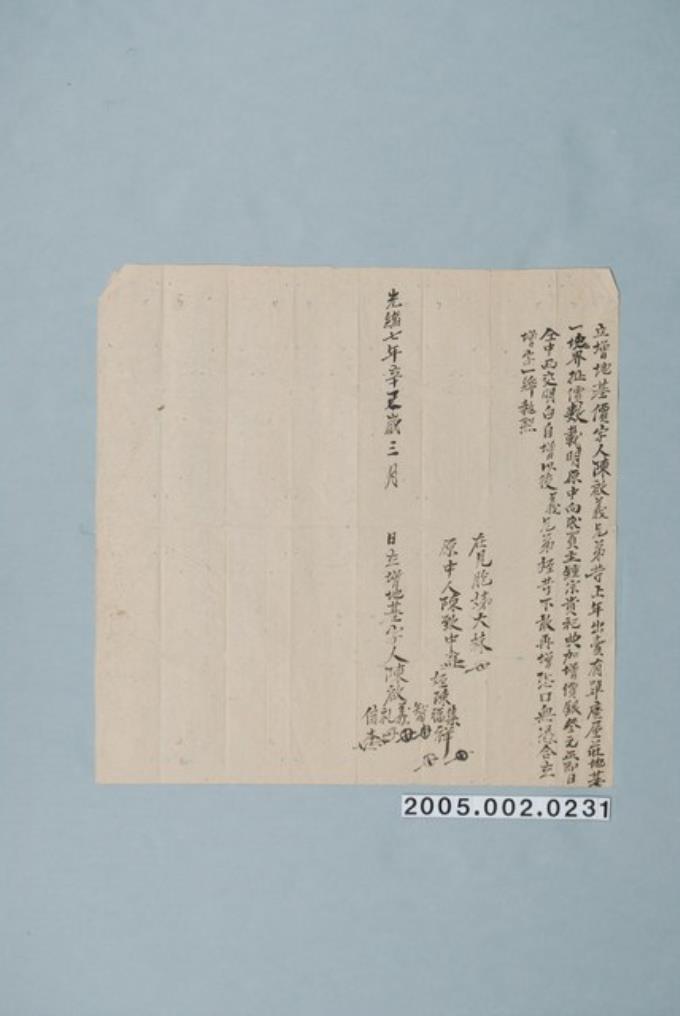 立增地基價字人陳啟義兄弟等上年出賣有單座屋莊地基
一地界址價數載明原中向買主鍾宗貴祀典加增價銀叁元正即日
仝中両交明白自增以後義兄弟姪等不敢再增恐口無憑合立
增字一紙執照
在見胞娣大妹
原中人陳致中
姪陳集福祥
光緒七年辛巳歲三月 日立增地基字人陳啟義智礼信
2005.002.0231